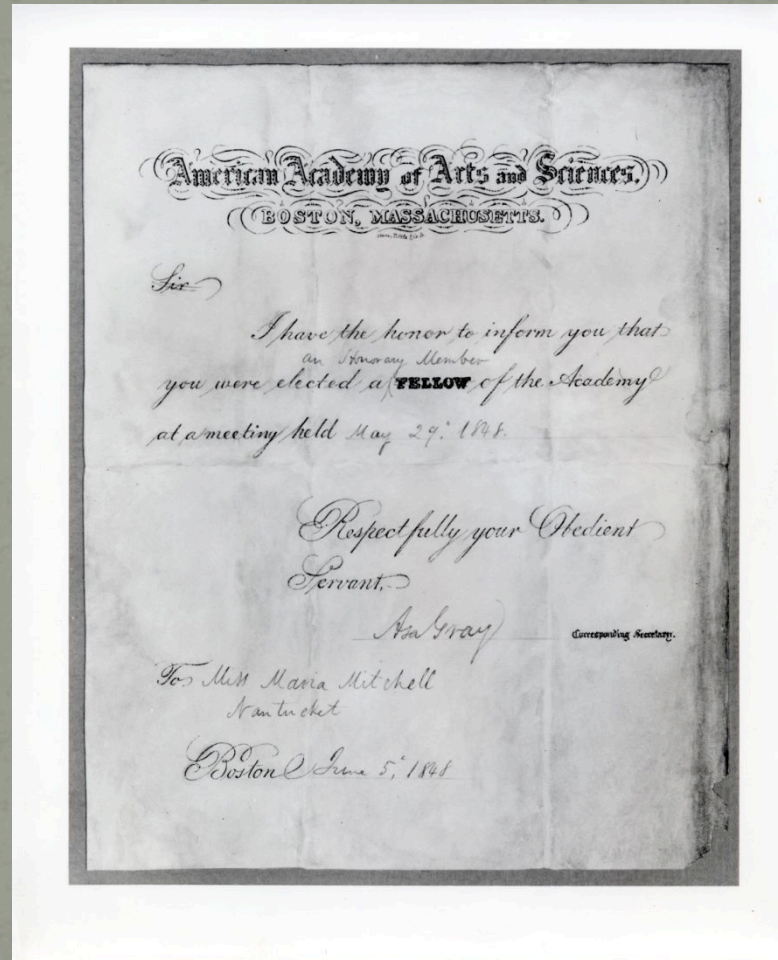 American Academy of Arts and Sciences.
BOSTON, MASSACHUSETTS.
Sir
I have the honor to inform you that
an Honorary Member
you were elected a FELLOW of the Academy
at a meeting held May 29. 1848.
Respectfully your Obedient
Servant,
Asa Gray
Corresponding Secretary.
To Miss Maria Mitchell
Nantucket
Boston June 5, 1848